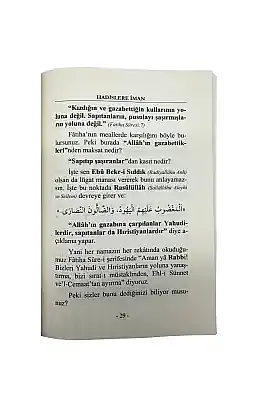 HADİSLERE İMAN
"Kızdığın ve gazabettiğin kullarının yo-
luna değil. Sapıtanların, pusulayı şaşırmışla-
rın yoluna değil." (Fâtiha Sûresi: 7)
Fâtiha'nın meallerde karşılığını böyle bu-
lursunuz. Peki burada "Allâh'ın gazabettik-
leri"nden maksat nedir?
"Sapıtıp şaşıranlar"dan kasıt nedir?
İşte sen Ebû Bekr-i Sıddîk (Radıyallâhu Anh)
olsan da lügat manası vererek bunu anlayamaz-
sın. İşte bu noktada Rasûlüllâh (Sallâllâhu Aleyhi
ve Sellem) devreye girer ve:
«اَلْمَغْضُوبُ عَلَيْهِمُ الْيَهُودُ، وَالضَّالُّونَ النَّصَارَى.»
"Allâh'ın gazabına çarpılanlar Yahudi-
lerdir, sapıtanlar da Hıristiyanlardır" diye a-
çıklama yapar.
Yani her namazın her rekâtında okuduğu-
muz Fâtiha Sûre-i şerifesinde "Aman yâ Rabbi!
Bizleri Yahudi ve Hıristiyanların yoluna yanaş-
tırma, bizi sırat-ı müstakîmden, Ehl-i Sünnet
ve'l-Cemaat'tan ayırma" diyoruz.
Peki sizler bunu dediğinizi biliyor musu-
nuz?
- 29 -